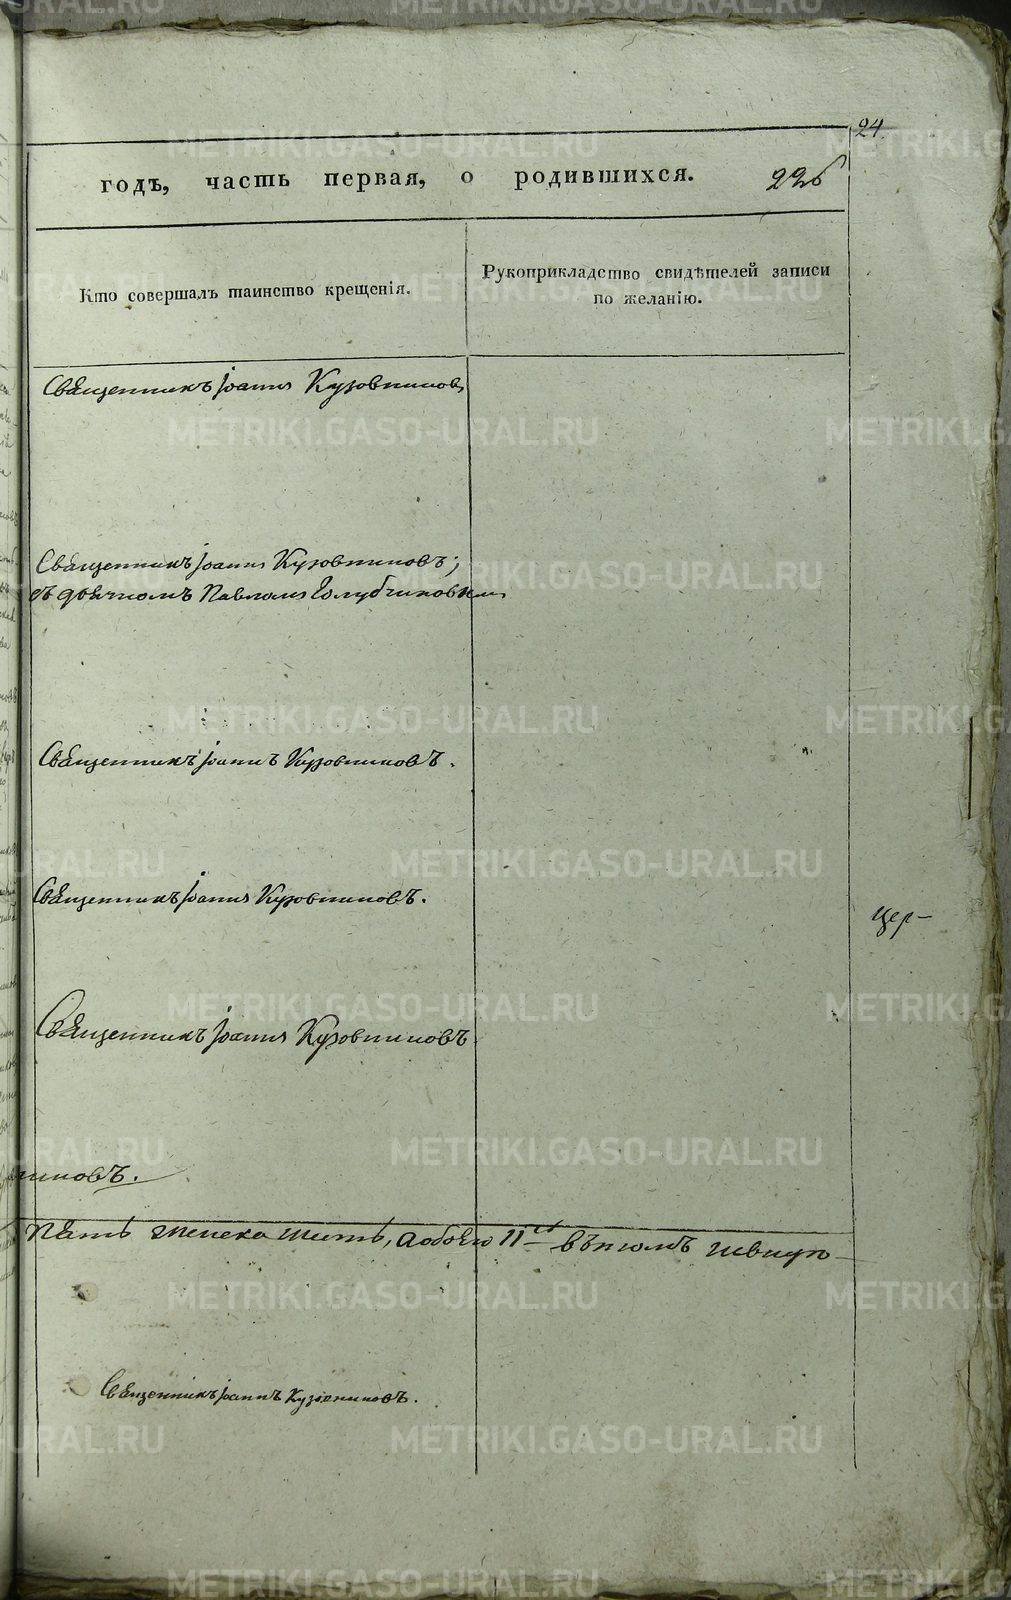 24
годъ, часть первая, о родившихся. 226
Кто совершалъ таинство крещенія.
Рукоприкладство свидѣтелей записи
по желанію.
Священникъ Іоаннъ Кузовниковъ
Священникъ Іоаннъ Кузовниковъ;
съ дьячкомъ Павломъ Голубчиковымъ
Священникъ Іоаннъ Кузовниковъ.
Священникъ Іоаннъ Кузовниковъ.
цер-
Священникъ Іоаннъ Кузовниковъ
никовъ.
пять женска шесть, а обоего 11 въ томъ
Священникъ Іоаннъ Кузовниковъ.
METRIKI.GASO-URAL.RU